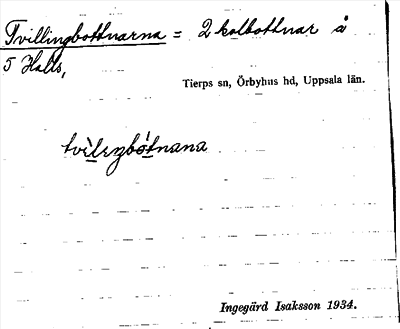 Tvillingbottnarna = 2 kolbottnar å
5 Halls,
Tierps sn, Örbyhus hd, Uppsala län.
tvìlıŋbòtnana
Ingegärd Isaksson 1934.